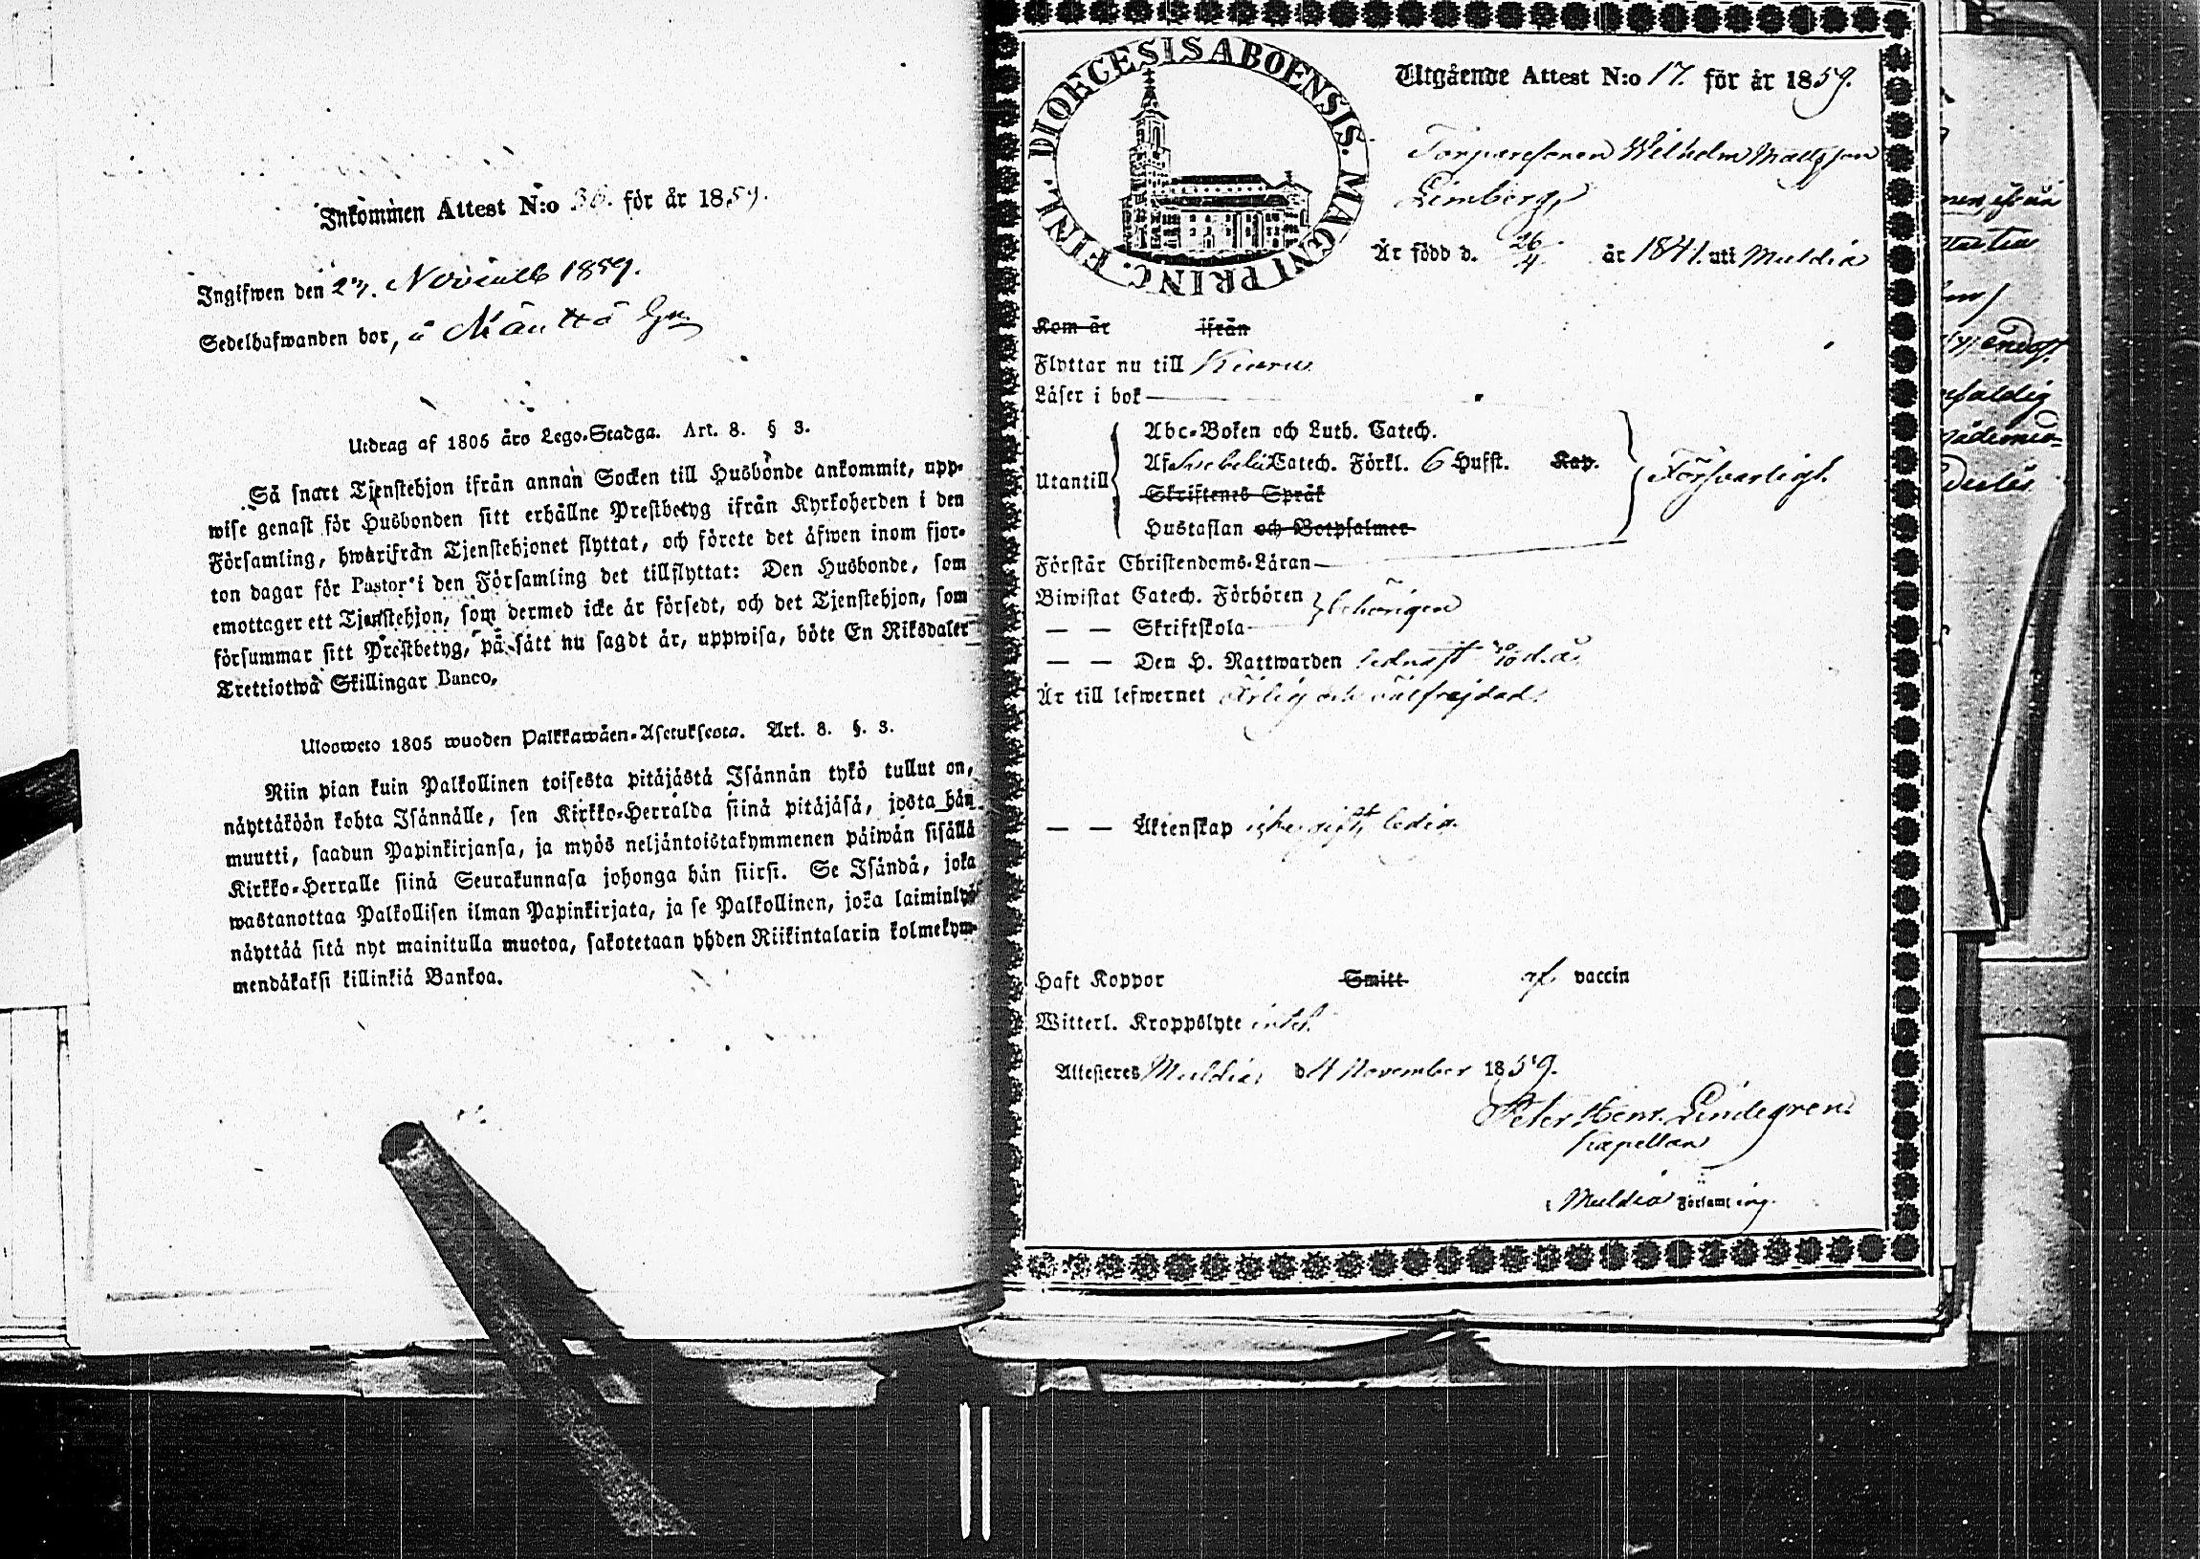 Inkommen Attest N:o 36. för år 1859.
Ingifwen den 27. Novemb 1859.
Sedelhafwanden bor, å Mänttä
Utdrag af 1805 års Lego-Stadga. Art. 8. § 3.
Så snart Tjenstehjon ifrån annan Socken till Husbonde ankommit, upp-
wise genast för Husbonden sitt erhållne Prestbetyg ifrån Kyrkoherden i den
Församling, hwarifrån Tjenstehjonet flyttat, och förete det äfwen inom fjor-
ton dagar för Pastor i den Församling det tillflyttat: Den Husbonde, som
emottager ett Tjenstehjon, som dermed icke är försedt, och det Tjenstehjon, som
försummar sitt Prestbetyg, på sätt nu sagdt är, uppwisa, böte En Riksdaler
Trettiotwå Skillingar Banco.
Ulosweto 1805 wuoden Palkkawäen-Asetuksesta. Art. 8. §. 3.
Niin pian kuin Palkollinen toisesta pitäjästä Isännän tykö tullut on,
näyttäköön kohta Isännälle, sen Kirkko-Herralda siinä pitäjäsä, josta hän
muutti, saadun Papinkirjansa, ja myös neljäntoistakymmenen päiwän sisällä
Kirkko-Herralle siinä Seurakunnasa johonga hän siirsi. Se Isändä, joka
wastanottaa Palkollisen ilman Papinkirjata, ja se Palkollinen, joka laiminlyö
näyttää sitä nyt mainitulla muotoa, sakotetaan yhden Riikintalarin kolmekym-
mendäkaksi killinkiä Bankoa.
DIOECESIS ABOENSIS. MAGNI PRINC. FINL.
Utgående Attest N:o 17. för år 1859.
Torparesonen Wilhelm Mattsson
Limberg,
Är född d. 26/4 år 1841. uti Muldia
Kom år ifrån
Flyttar nu till Kuru
Läser i bok
Abc-Boken och Luth. Catech.
Utantill Af Swebelii Catech. Förkl. 6 Hufst. Kap. Försvarligt.
Skriftenes Språk
Hustaflan och Botpsalmer
Förstår Christendoms-Läran
Biwistat Catech. Förhören behörigen
— — Skriftskola
— — Den H. Nattwarden sednast d.å.
Är till lefwernet Ärlig och välfrejdad.
— — Äktenskap icke gift, ledig.
Haft Koppor Smitt af vaccin
Witterl. Kroppslyte intet.
Attesteres Muldia d 11 November 1859.
Peter Henr. Lindegren.
Kapellan
i Muldia Församling.